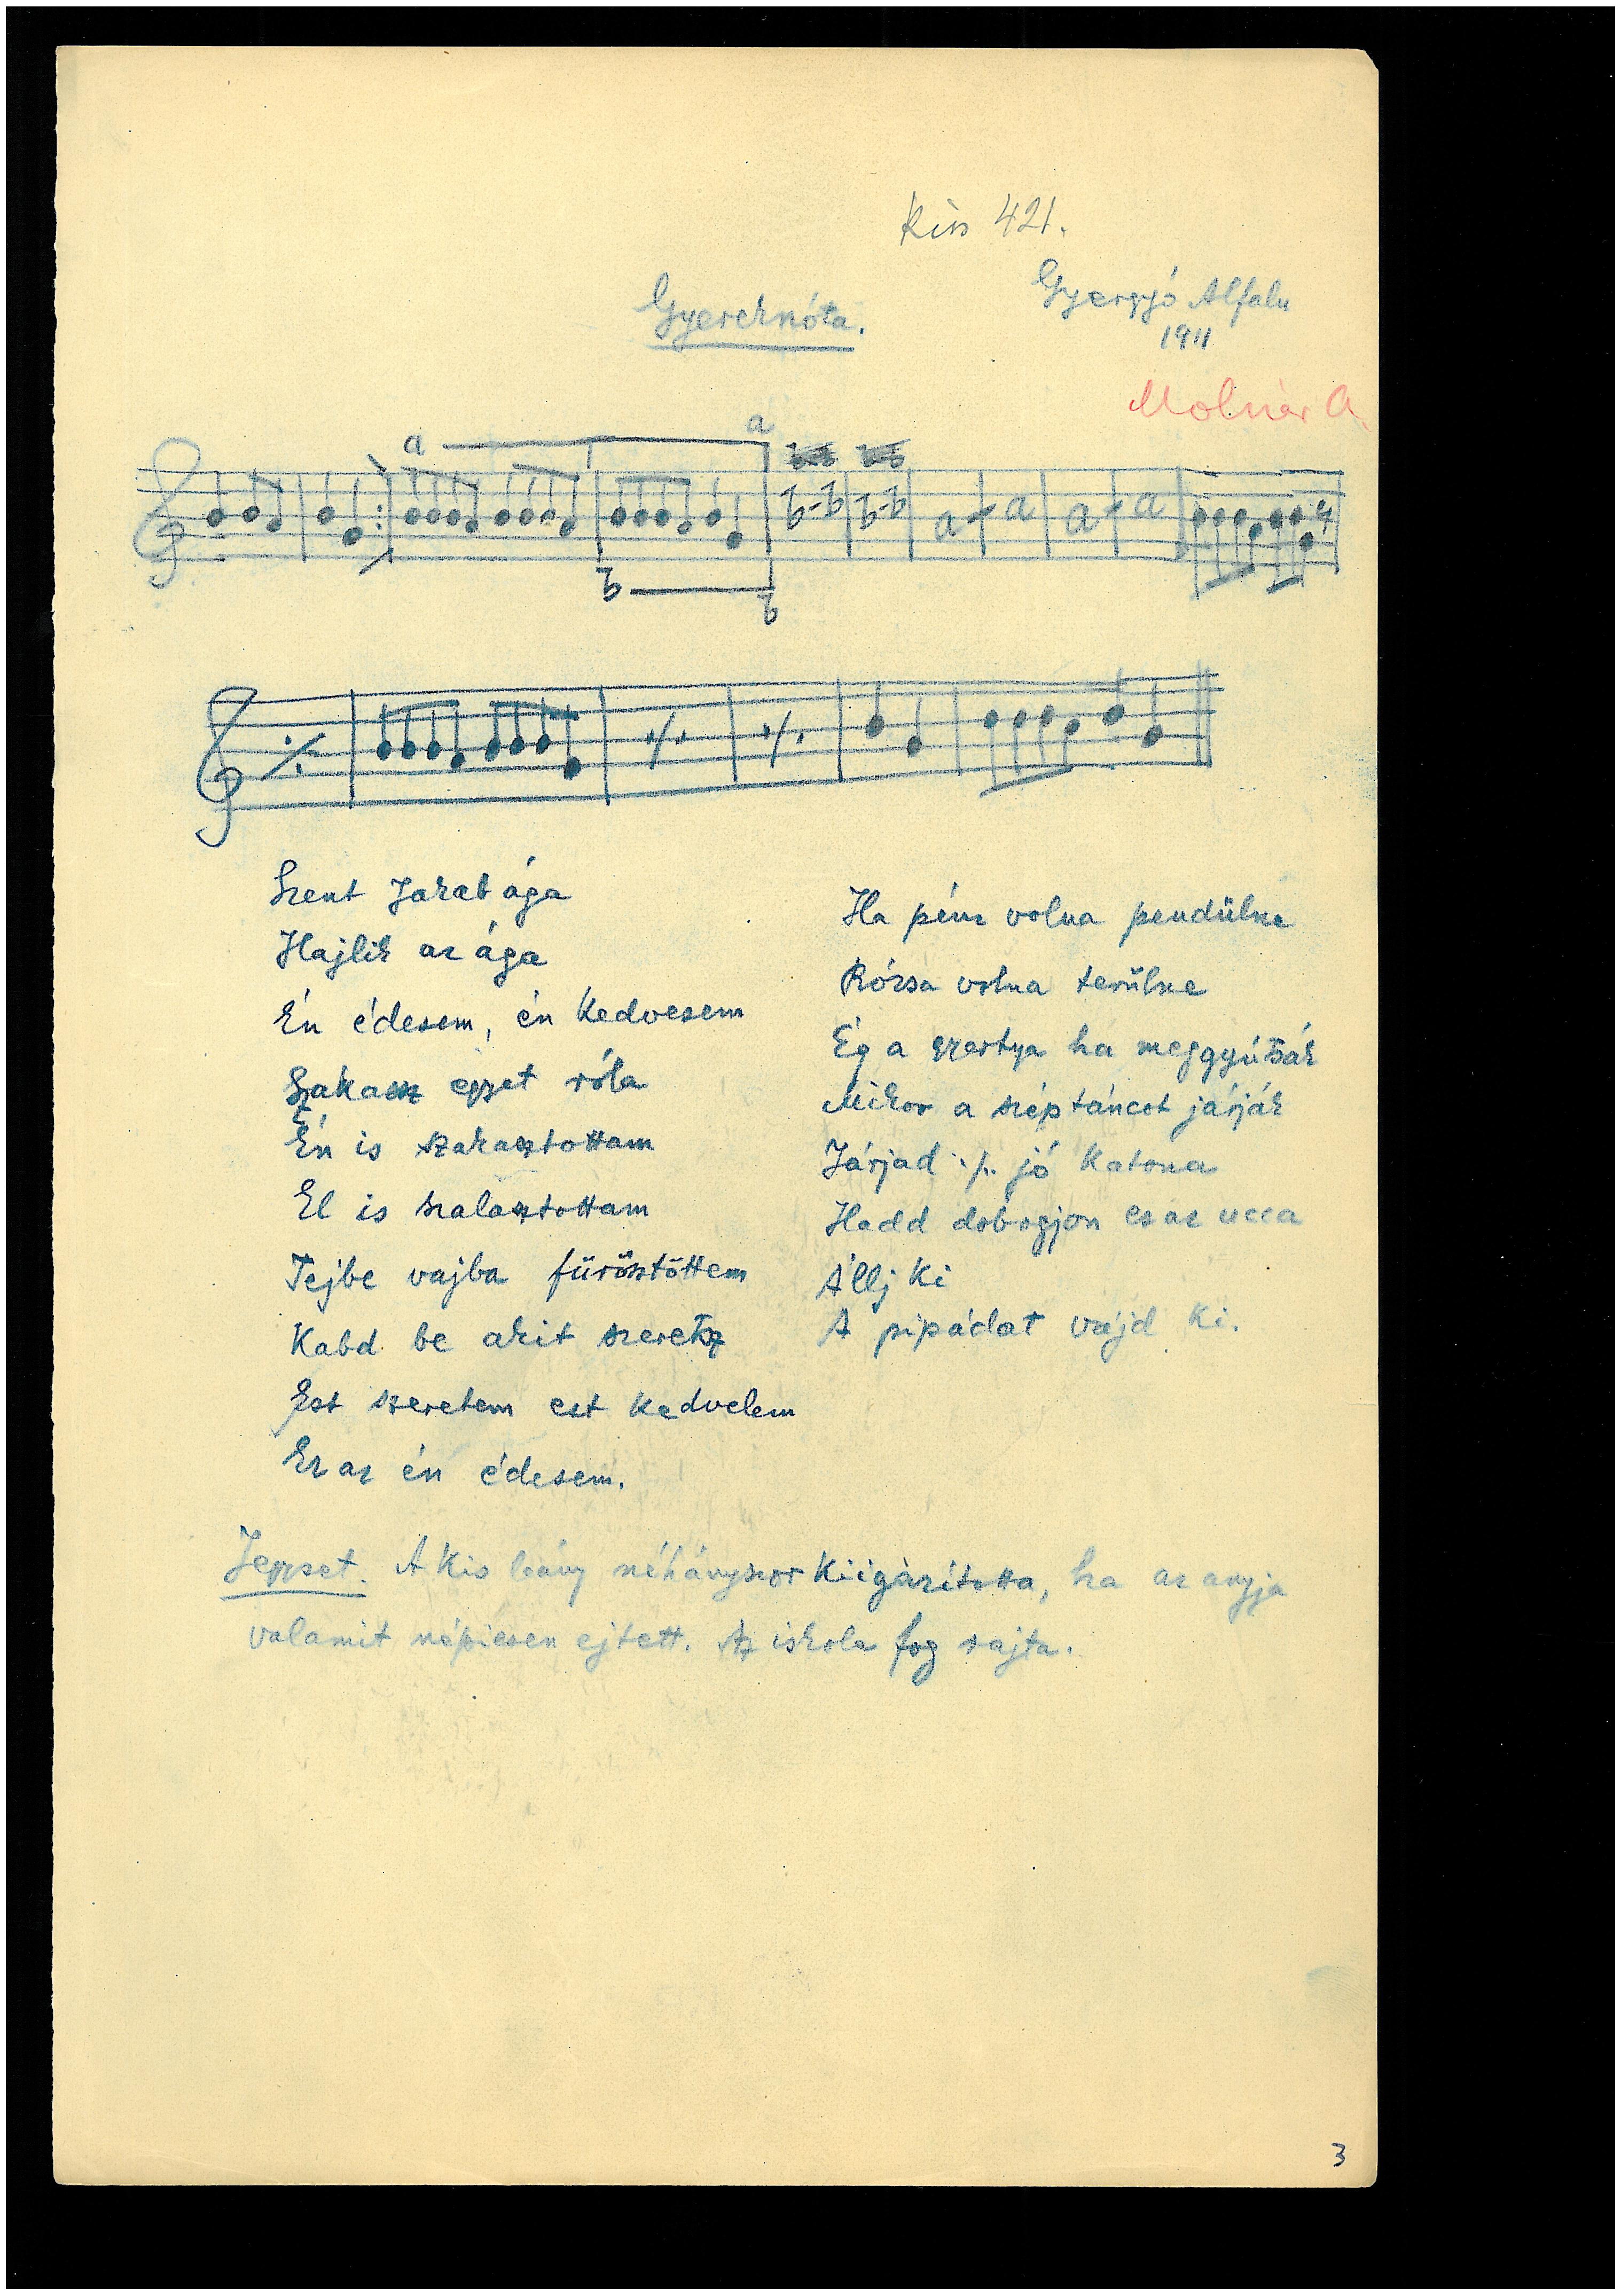 Kiss 421.
Gyereknóta.
Gyergyó Alfalu
1911
Molnár A.
a a
b-b b-b a-a a-a
b b
Szent Jakab ága
Hajlik az ága
Én édesem, én kedvesem
Szakassz egyet róla
Én is szakasztottam
El is szalasztottam
Tejbe vajba fürösztöttem
Kabd be akit szeretsz
Ezt szeretem ezt kedvelem
Ez az én édesem.
Ha pénz volna pendülne
Rózsa volna terülne
Ég a gyertya ha meggyútsák
Mikor a széptáncot járják
Járjad ·/. jó katona
Hadd dobogjon ez az ucca
Állj ki
A pipádat vájd ki.
Jegyzet. A kis leány néhányszor kiigazította, ha az anyja
valamit népiesen ejtett. Az iskola fog rajta.
3